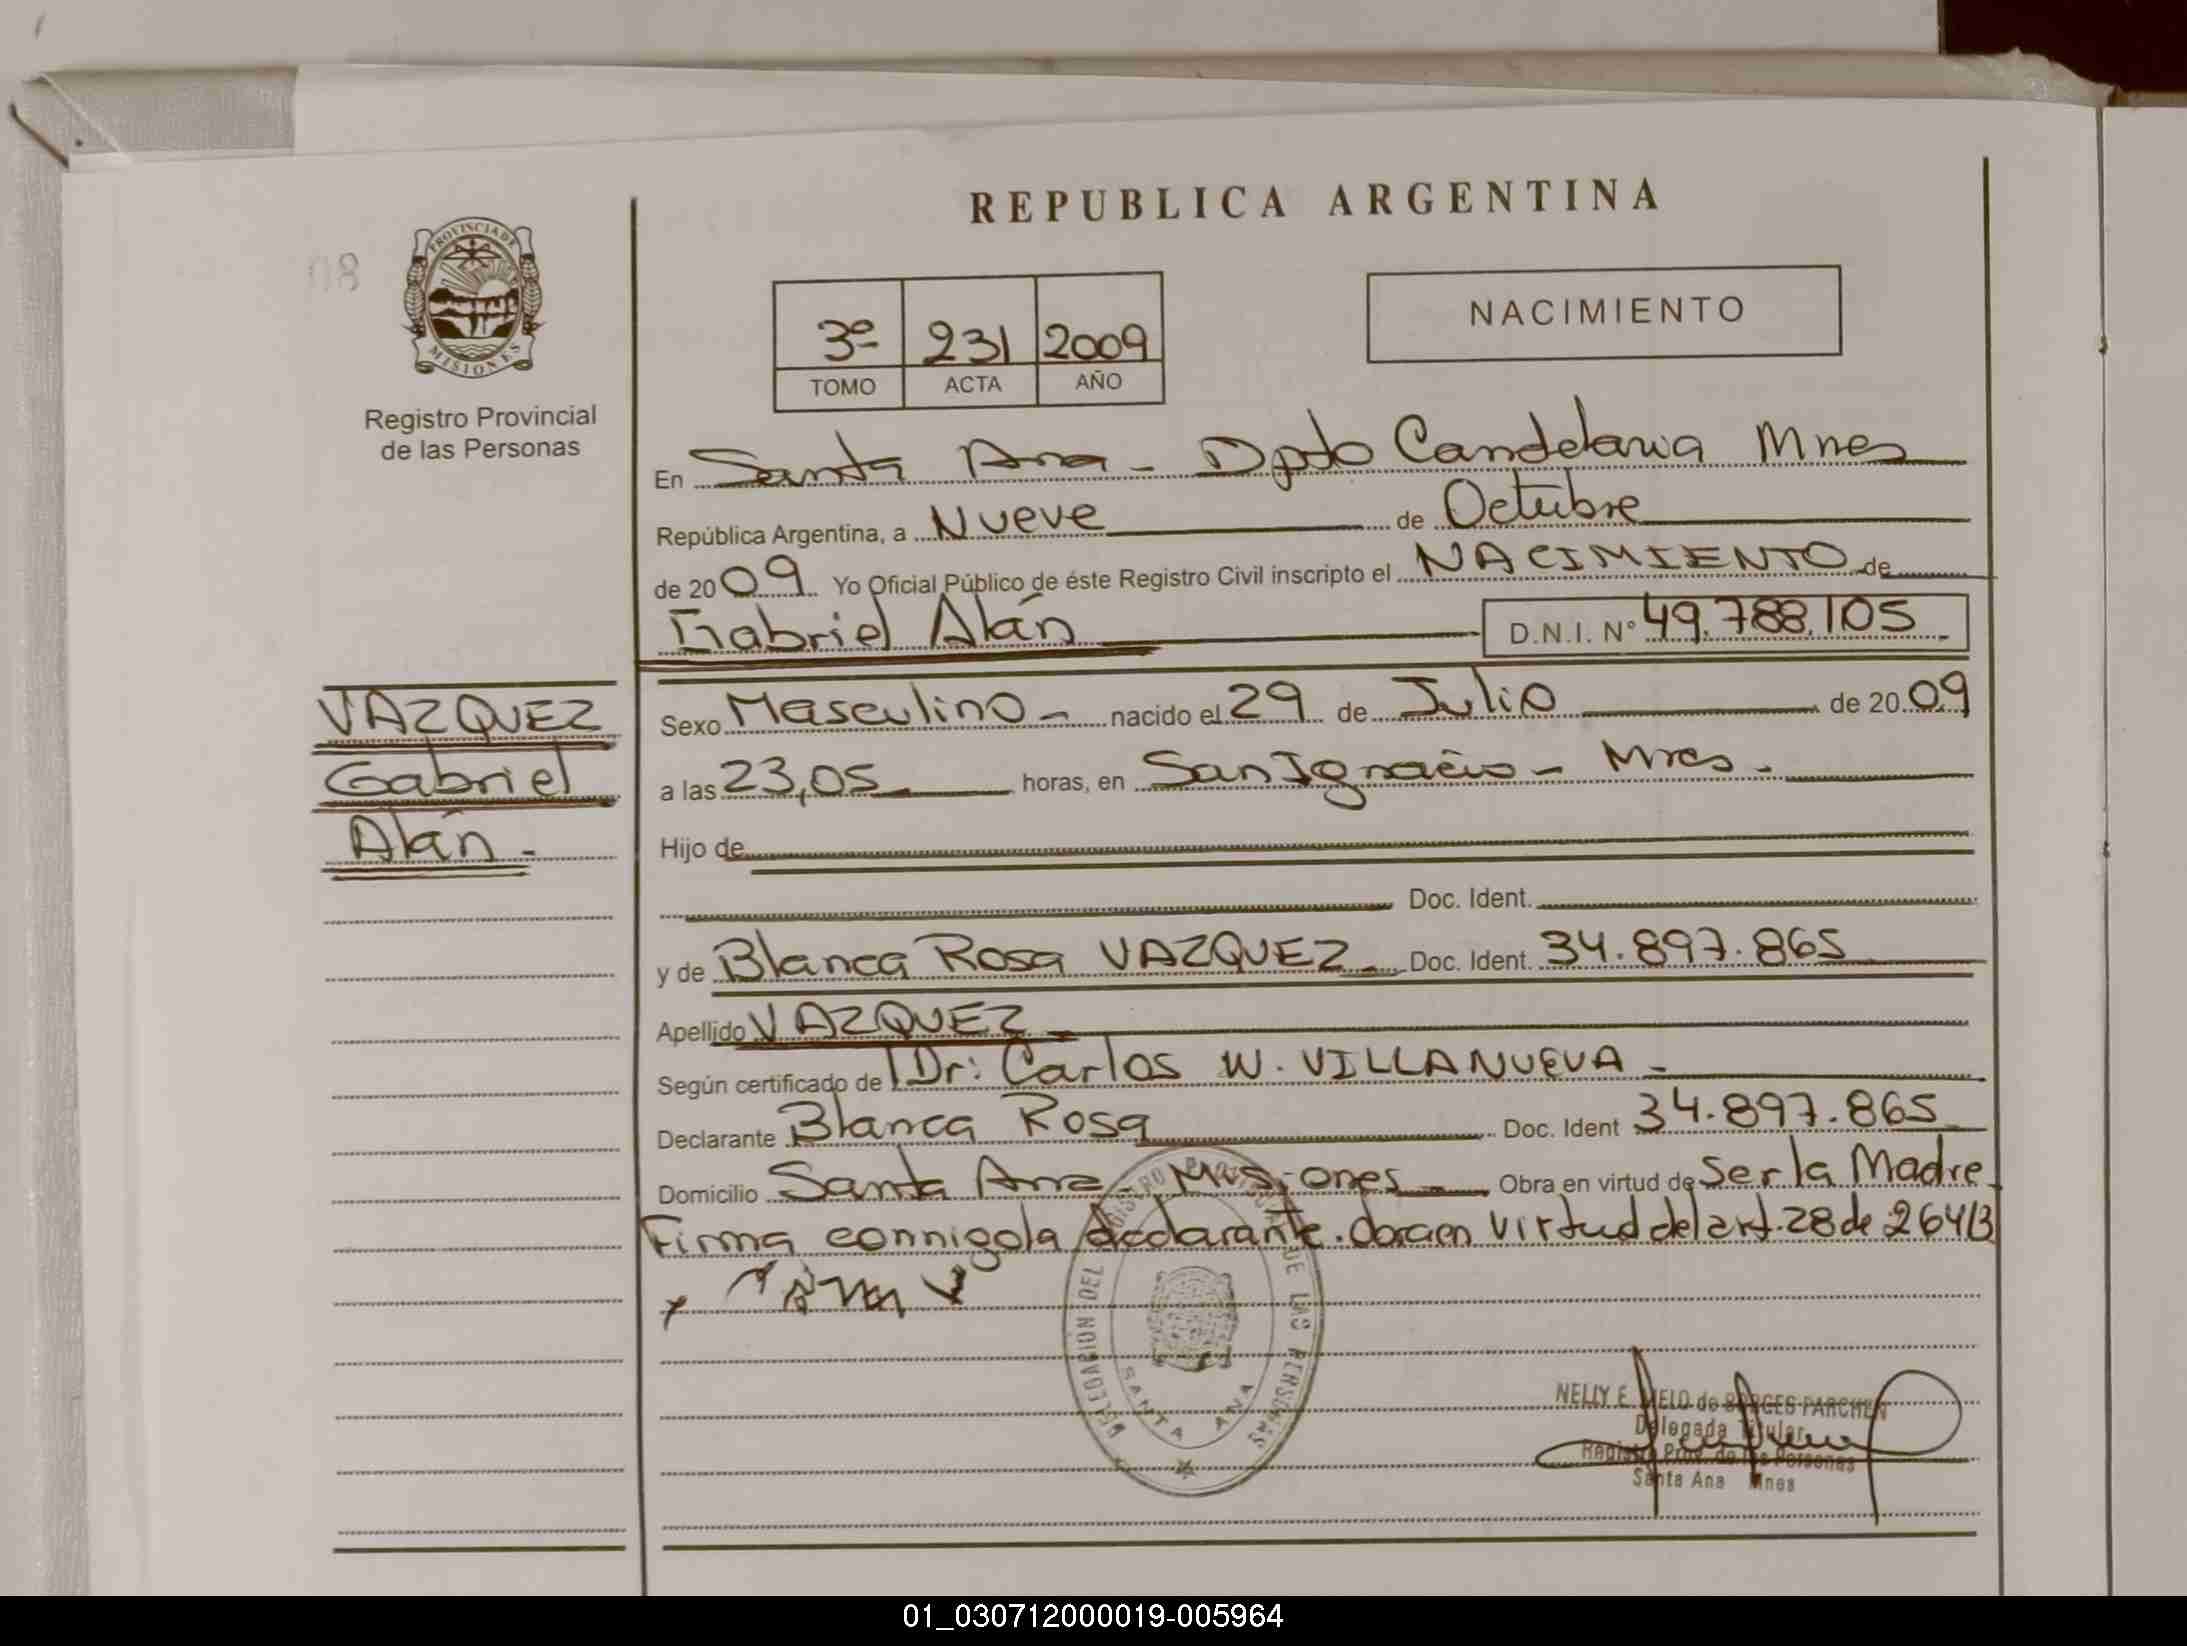 REPUBLICA ARGENTINA
08
PROVINCIA DE
MISIONES
Registro Provincial
de las Personas
3º 231 2009
TOMO ACTA AÑO
NACIMIENTO
En Santa Ana - Dpto Candelaria Mnes
República Argentina, a Nueve de Octubre
de 2009 Yo Oficial Público de éste Registro Civil inscripto el NACIMIENTO de
Gabriel Alán D.N.I. Nº 49.788.105
VAZQUEZ
Gabriel
Alán -
Sexo Masculino - nacido el 29 de Julio de 20 09
a las 23,05 horas, en San Ignacio - Mnes -
Hijo de
Doc. Ident.
y de Blanca Rosa VAZQUEZ - Doc. Ident. 34.897.865
Apellido VAZQUEZ -
Según certificado de Dr: Carlos W. VILLANUEVA -
Declarante Blanca Rosa Doc. Ident 34.897.865
Domicilio Santa Ana - Misiones - Obra en virtud de Ser la Madre
Firma connigo la declarante. Obra en virtud del art. 28 de 26413
DELEGACION DEL REGISTRO PROVINCIAL DE LAS PERSONAS
SANTA ANA
NELLY E. MELO de BORGES PARCHEN
Delegada Titular
Registro Prov. de las Personas
Santa Ana Mnes
01_030712000019-005964